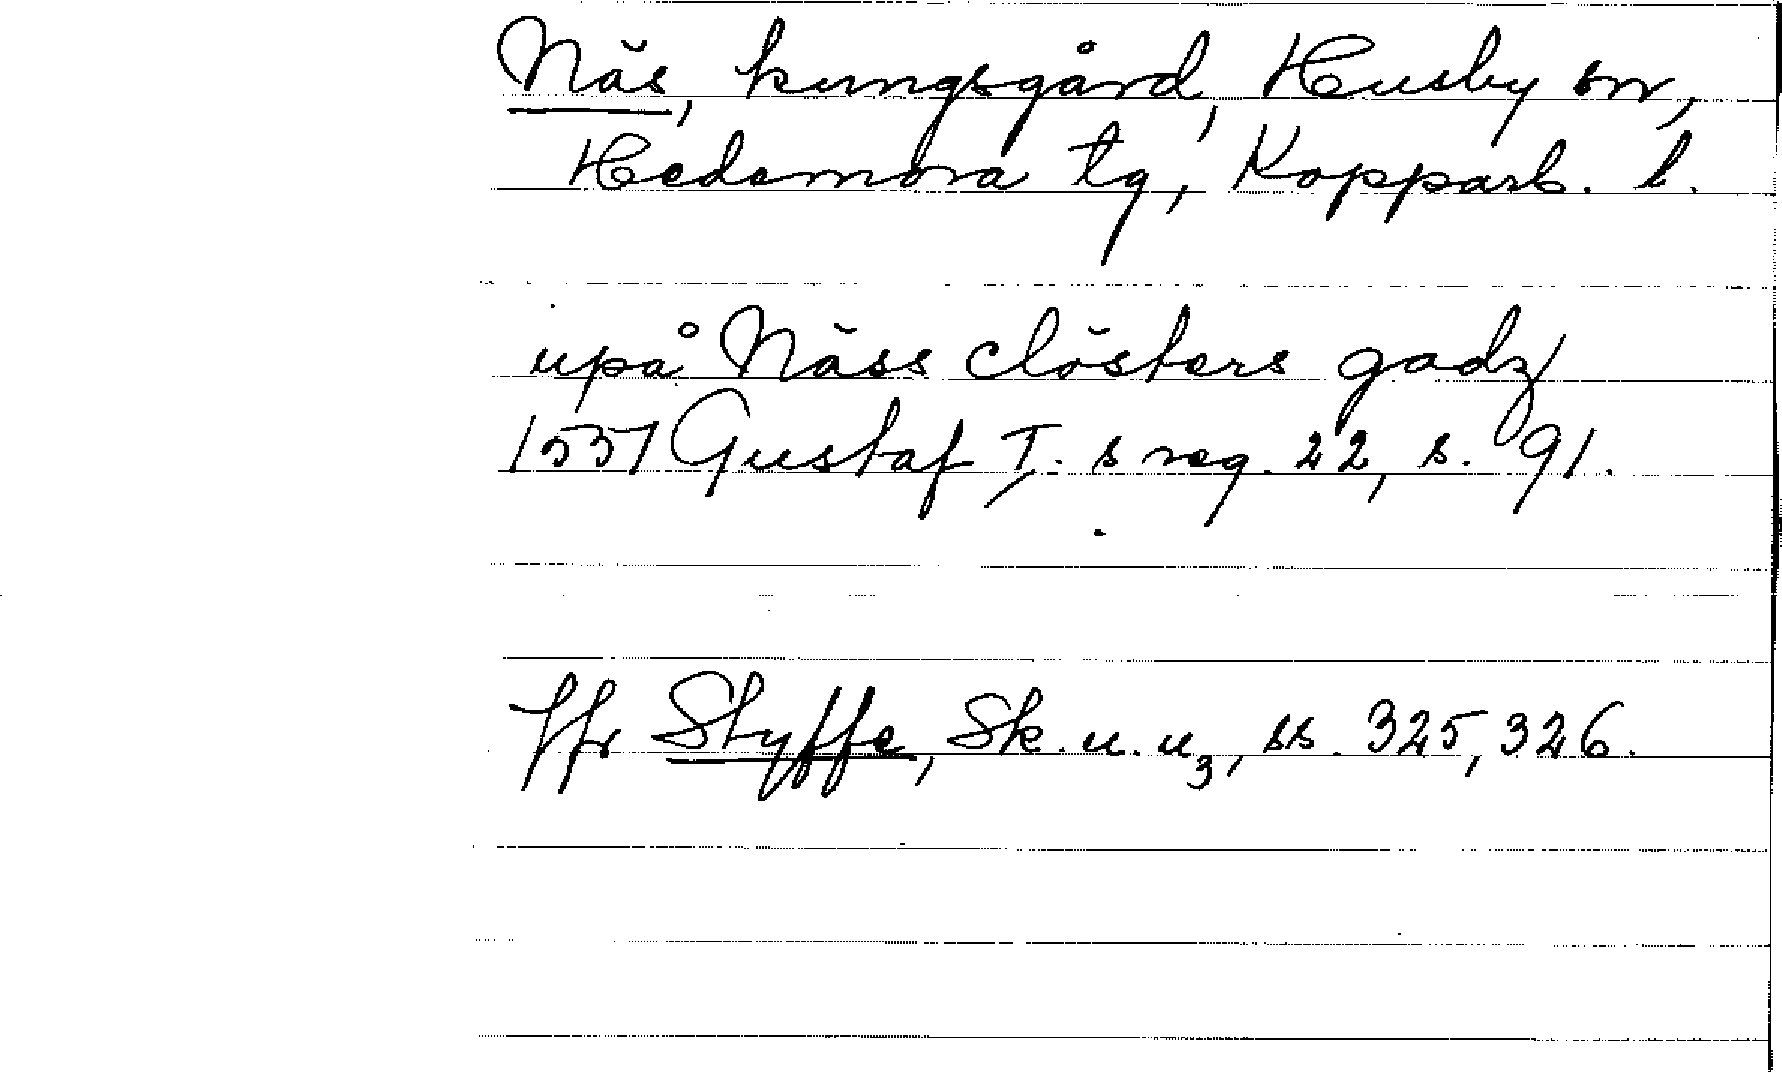 Näs, kungsgård, Husby sn,
Hedemora tg, Kopparb. l.
upå Näss clösters godz
1551 Gustaf I.s reg. 22, s. 91.
Jfr Styffe, Sk.u.u3, ss. 325, 326.